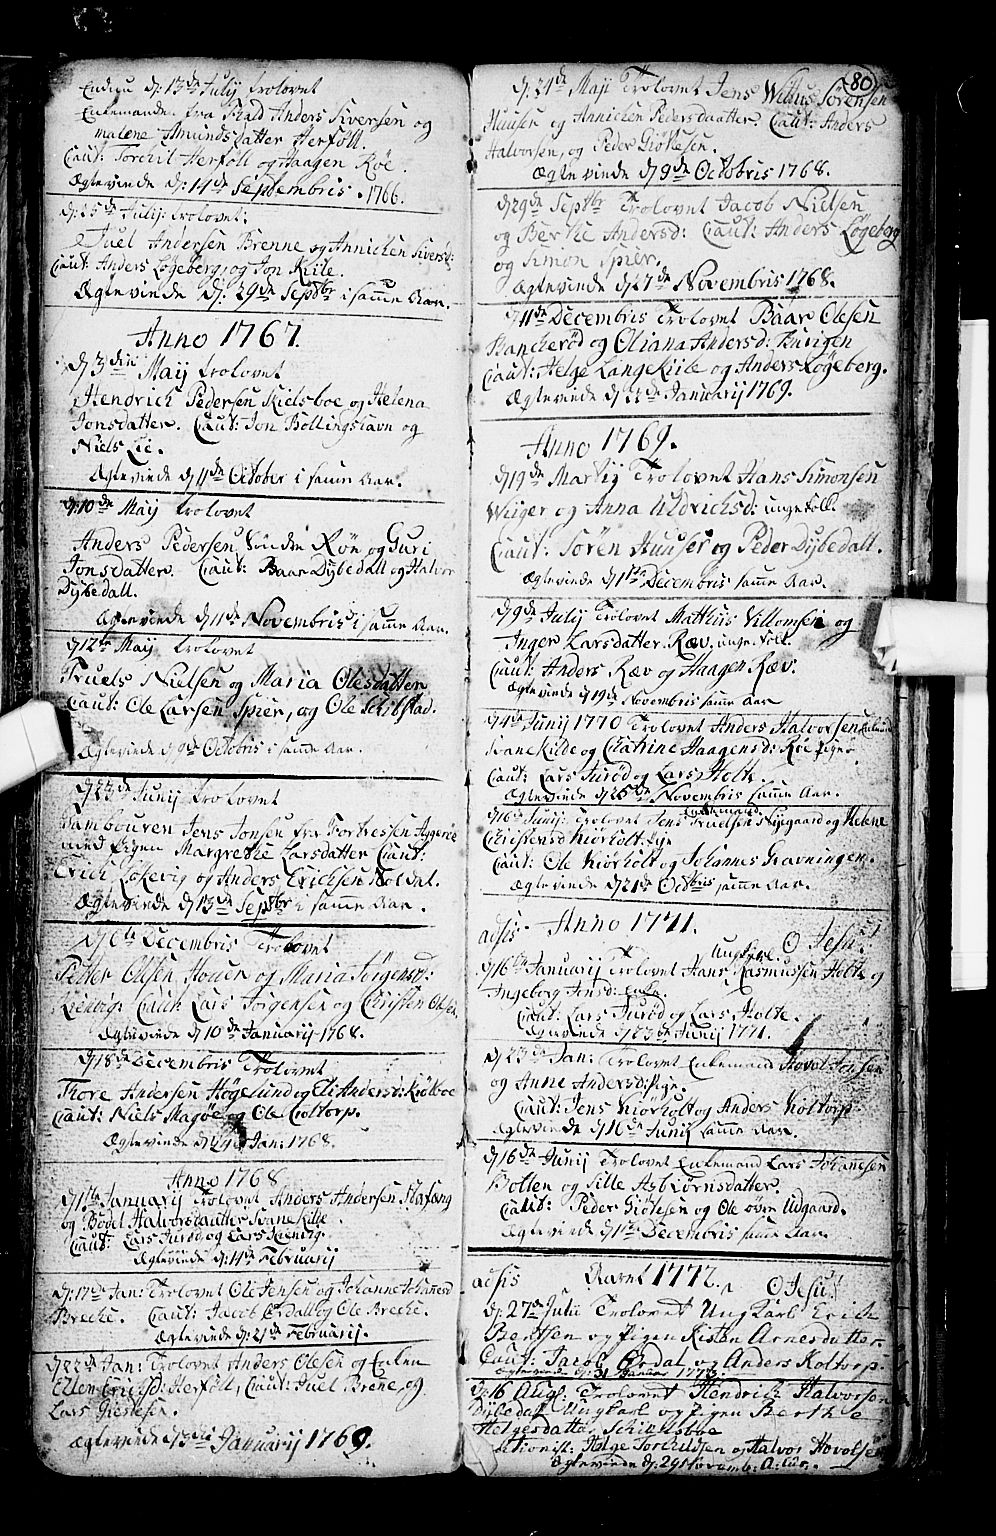 Endnu d: 13de July trolovet
Enkemanden fra Hald Anders Siversen og
Malene Amunds datter Herföll.
Caut: Torchil Herföll og Haagen Röe.
Ægtevinde d: 14de Septembris. 1766.
d: 25de Julij: trolovet:
Juel Andersen Brenne og Annichen Siversd:
Caut: Anders Løgeberg, og Jon Kiile.
Ægtevinde d. 29de Septbr i samme Aar.
Anno 1767.
d 3die Maij trolovet
Hendrich Pedersen Kielsboe og Helena
Jonsdatter. Caut: Jon Böllingstavn og
Niels Lie.
Ægtevinde d 11de October i samme Aar.
d: 10de Maij trolovet
Anders Pedersen Röe og Guri
Jonsdatter. Caut: Baar Dybedall og Halvor
Dybedall.
Ægtevinde d 11de Novembris i samme Aar.
d 12te Maij trolovet
Truels Nielsen og Maria Olesdatter
Caut: Ole Larsen Spier, og Ole Schibstad.
Ægtevinde d 9de Octobris i samme Aar.
d 23de Junij trolovet
Tambouren Jens Jonsen fra Fortressen Aggeröe
med Pigen Margrethe Larsdatter Caut:
Erich Lökevig og Anders Erichsen Holdal.
Ægtevinde d 13de Septbr i samme Aar.
d 6te Decembris Trolovet
Peder Olsen Houen og Maria Jörgensd:
Kienvig: Caut: Lars Jörgensen og Christen Olsen.
Ægtevinde d 10de Januarij 1768.
d 18de Decembris Trolovet
Thore Andersen Högelund og Eli Andersd: Kiölboe
Caut: Niels Magöe og Ole Coltorp.
Ægtevinde d Jan: 1768.
Anno 1768
d 1te Januarij Trolovet Anders Andersen Stafæng
og Bodel Halvorsdatter Svanekilde.
Caut: Lars Furöd og Lars Kienvig.
Ægtevinde d: 14de Februarij
d: 17de Jan: Trolovet Ole Jensen og Johanne Johannesd
Breche. Caut: Jacob Ordall og Ole Breche.
Ægtevinde d: 21de Februarij.
d 22de Jan: Trolovet Anders Olesen og Enken
Ellen Erichsd: Herföll, Caut: Juel Brene, og
Lars Giertsen.
Ægtevinde d 3die Januarij 1769.
80
d: 21de Maji Trolovet Jens Wilhus Sörensen
Huusen og Annichen Pedersdaatter. Caut: Anders
Halvorsen, og Peder Giötesen.
Ægtevinde d 9de Octobris 1768.
d 29de Septbr Trolovet Jacob Nielsen
og Berthe Andersd: Caut: Anders Løgeberg
og Simon Spier.
Ægtevinde d 27de Novembris 1768.
d 11te Decembris Trolovet Baar Olesen
Bancheröd og Oliana Andersd: Knivigen
Caut: Helge Langekiile og Anders Løgeberg.
Ægtevinde d 22de Januarij 1769.
Anno 1769.
d 19de Martij Trolovet Hans Simonsen
Wiiger og Anna Uldrichsd: unge Folk.
Caut: Sören Huuser og Peder Dybedall.
Ægtevinde d 1ste Decembris samme Aar.
d 9de Julij Trolovet Mathis Villomsen og
Inger Larsdatter Ræv, unge Folk.
Caut: Anders Ræv og Haagen Ræv.
Ægtevinde d 19de Novembris samme Aar
d 4de Junij 1770 Trolovet Anders Halvorsen Enkemd
Svanekilde og Catrine Haagensd: Röe Pige
Caut: Lars Furöd og Lars Holte.
Ægtevinde d 25de Novembris samme Aar.
Enkemand
d 16de Junij: Trolovet Jens Truelsen Nygaard og Helene
Christensd Kiörholt: Pige
Caut: Ole Kiörholt og Johannes Gravningen.
Ægtevinde d 21de Octbris samme Aar.
adsis Anno 1771. O Jesu!
Ungkarl
d 16de Januarij Trolovet Hans Rasmussen Holte og
Ingeborg Ensd: Enke.
Caut: Lars Furöd og Lars Holte.
Ægtevinde d 23de Junij 1771.
d 23de Jan: Trolovet Enkemand Hovol Jonsen
og Anne Andersd: Pige.
Caut: Jens Kiörholt og Anders Koltorp
Ægtevinde d 16de Junij samme Aar.
d 16de Junij Trolovet Enkemand Lars Johannesen
Bolten og Sille Asbiörnsdatter.
Caut: Peder Giötesen og Ole övre Udgaard.
Ægtevinde d 1ste Decembris samme Aar.
adsis Aaret 1772. O Jesu!
d: 27de Julii Trolovet Ungkarl Erik
Bentsen og Pigen Kisten Arnesdatter.
Caut: Jacob Ordal og Anders Koltorp.
Ægtevinde d: 31 Januar 1773.
d: 16 Aug: Trolovet Hendrik Halvorsen
Dybedal Ungkarl og Pigen Berthe
Helgesdatter Schiulsboe
Cautionist: Helge Torchildsen og Halvor Hovolsen
Ægtevinde d: 29 Novemb: A: cur.